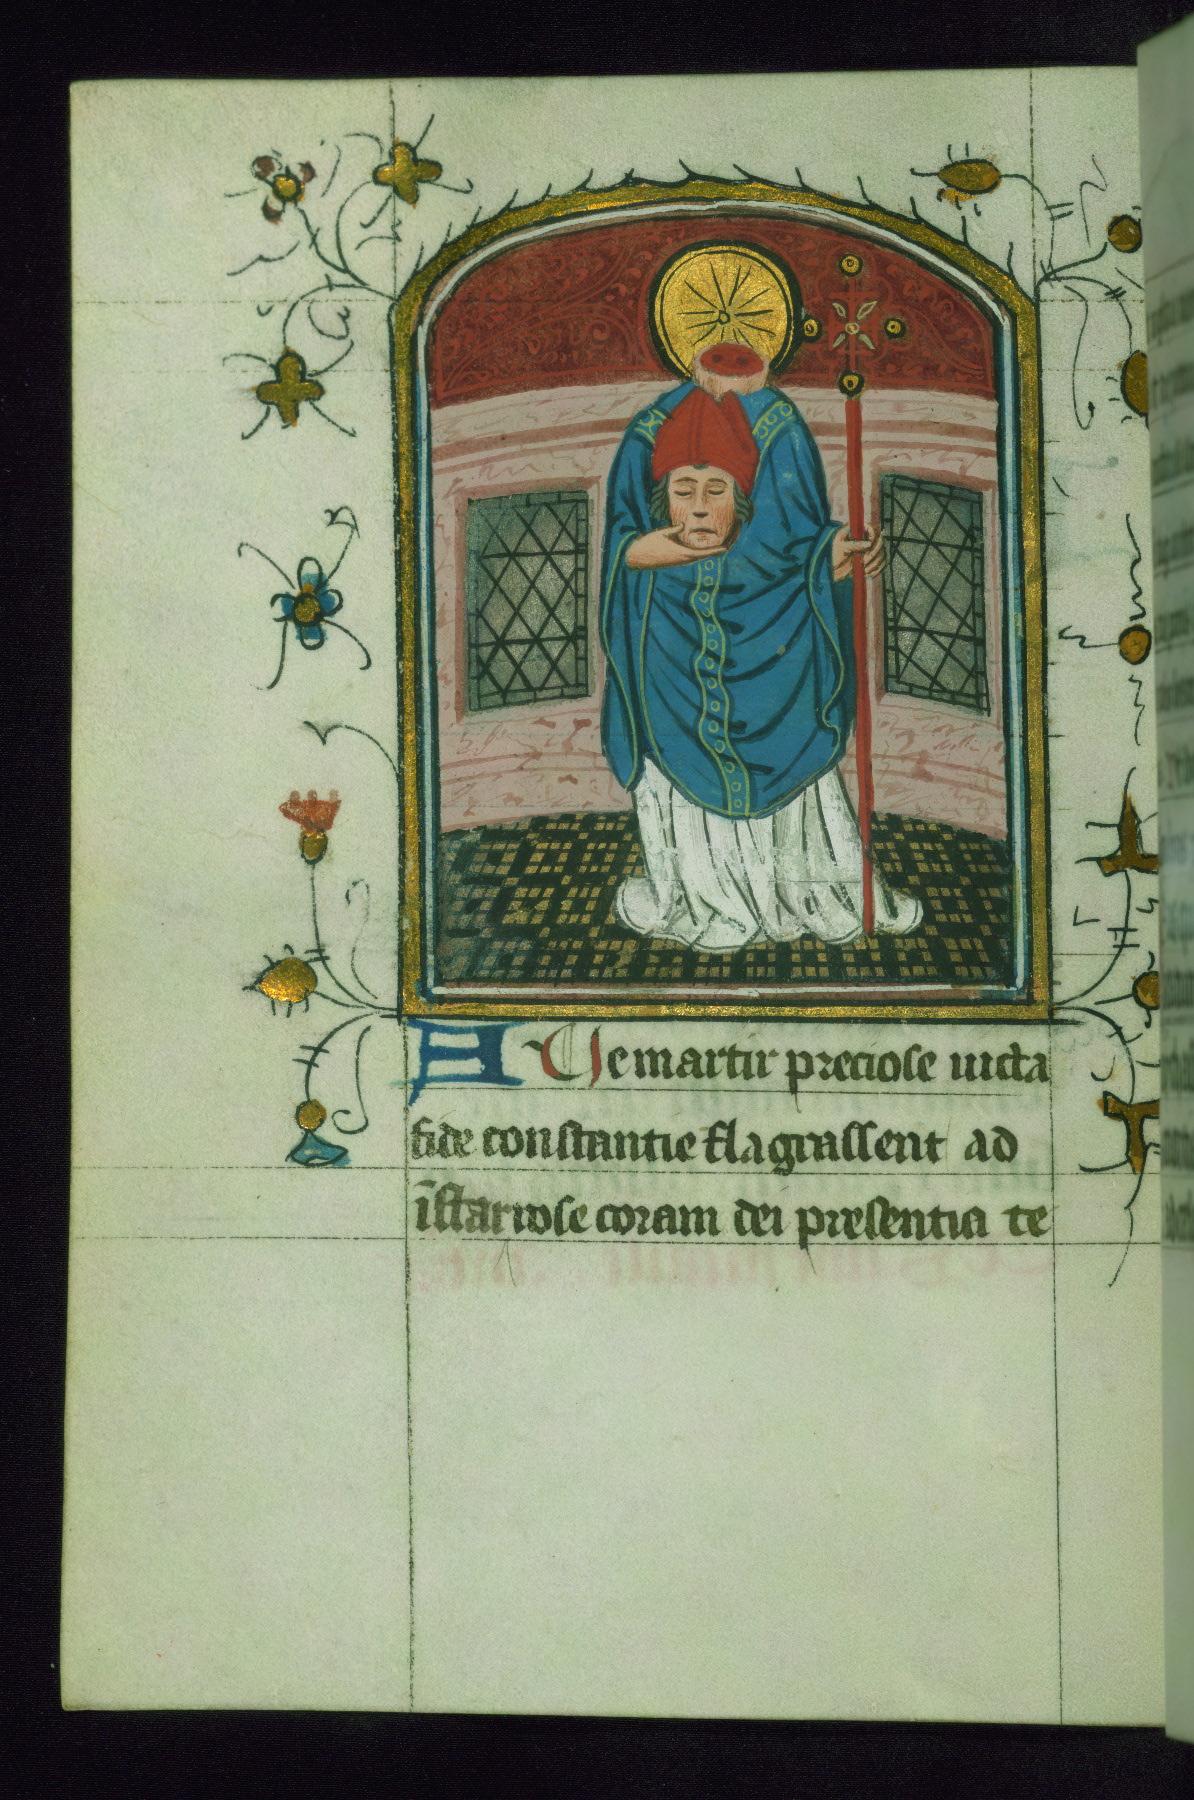 AUe martir preciose uicta
fide constantie flagrassent ad
īstar rose coram dei presentia te